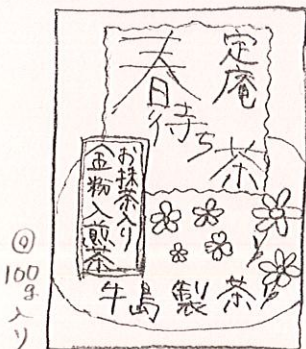 定庵
春待ち茶
お抹茶入り
金粉入煎茶
牛島製茶
100g入り